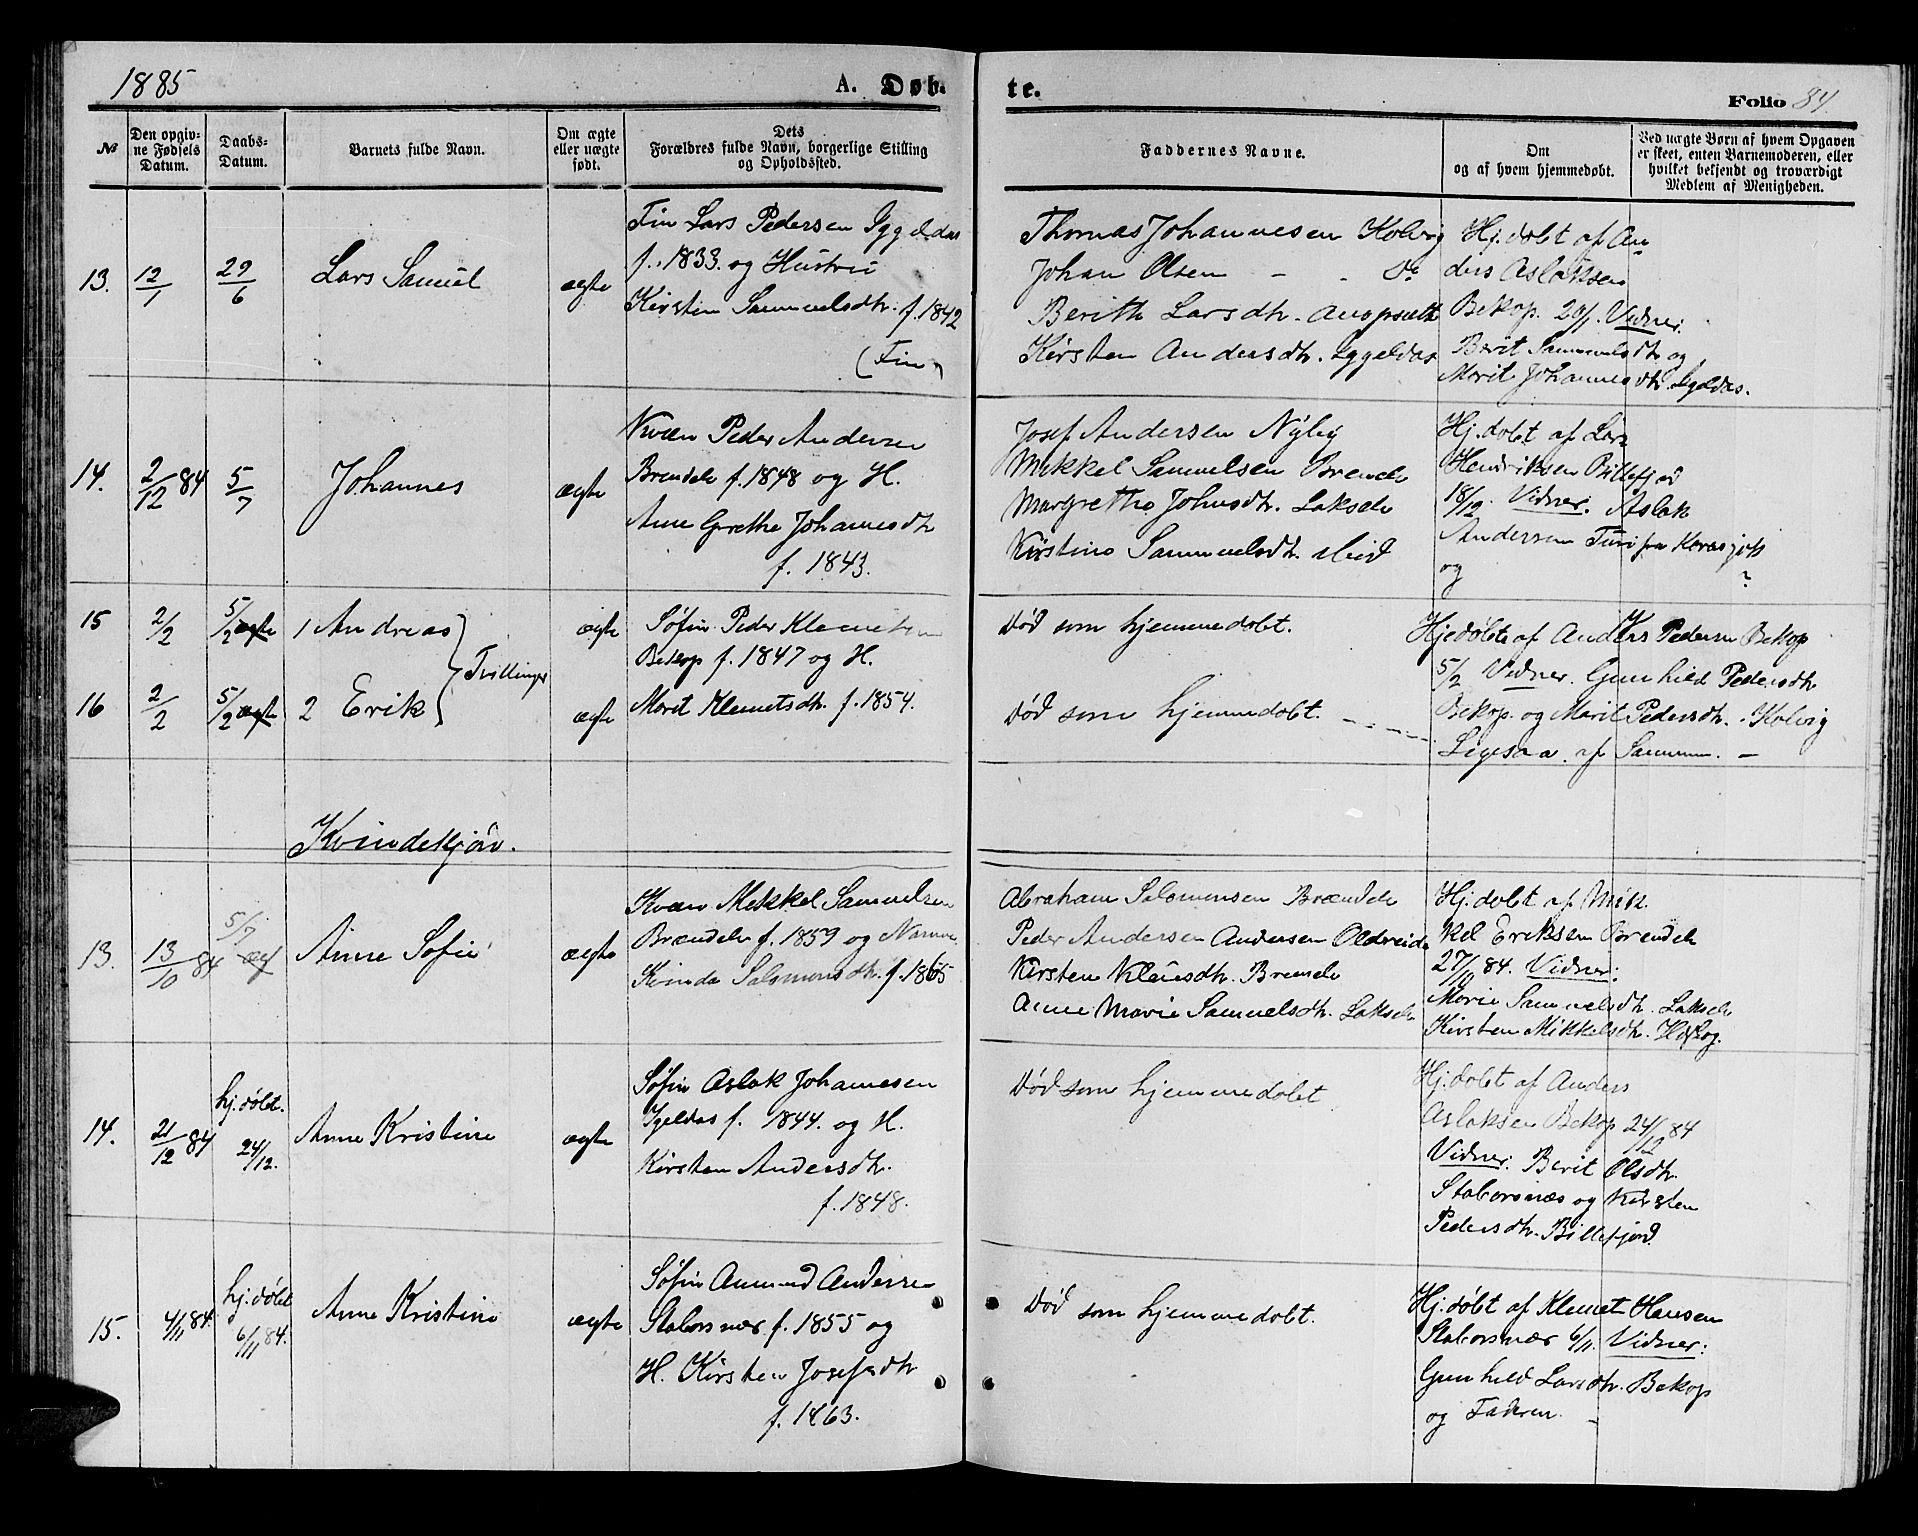 1885
A. Døb-
te.
Folio 84.
№
Den opgiv-
ne Fødsels
Datum.
Daabs-
Datum.
Barnets fulde Navn.
Om ægte
eller uægte
født.
Dets
Forældres fulde Navn, borgerlige Stilling
og Opholdssted.
Faddernes Navne.
Om
og af hvem hjemmedøbt.
Ved uægte Børn af hvem Opgaven
er skeet, enten Barnemoderen, eller
hvilket bekjendt og troværdigt
Medlem af Menigheden.
13.
12/1
29/6
Lars Samuel
ægte
Fin Lars Pedersen Iggeldas
f. 1833. og Hustru
Kirsten Sammuelsdtr. f. 1842
(Fin)
Thomas Johannesen Kolvig
Johan Olsen - - Do
Berith Larsdtr.
Kirsten Andersdtr. Iggeldas
Hj. dobt af An-
ders Aslaksen
Bekop. 20/1. Vidner.
Berit Sammuelsdtr og
Marit Johannesdtr. Igeldas.
14.
2/12 84
5/7
Johannes
ægte
Kvæn Peder Andersen
Brendelv f. 1848 og H.
Ane Grethe Johannesdtr
f. 1843.
Josef Andersen Nyløy
Mikkel Samuelsen Brendelv
Margrethe Johnsdtr. Lakselv
Kirstine Sammuelsdtr. ibid
Hj. dobt af Lars
Hendriksen Billefjord
18/12. Vidner. Aslak
Andersen Turi fra Karasjok
og ?
15
2/2
5/2 ægte
1 Andreas
Tvillinger
ægte
Søfin Peder Klemetsen
Bekop f. 1847 og H.
Død som hjemmedobt.
Hjedøbt af Anders Pedersen Bekop
5/2 Vidner. Gunhild Pedersdtr
16
2/2
5/2 ægte
2 Erik
ægte
Marit Klemetsdtr. f. 1854.
Død som hjemmedobt.
Bekop. og Marit Pedersdtr. Kolvig
Ligesaa af Samme. -
Kvindekjøn.
13.
13/10 84
5/7
Anne Sofie
ægte
Kvæn Mikkel Samuelsen
Brændelv f. 1859 og Norsk
Kvinde Salomonsdtr. f. 1865
Abraham Salomonsen Brændelv
Peder Andersen Andersen Oldereide
Kirsten Klausdtr. Brendelv
Anne Marie Samuelsdtr. Lakselv
Hj. dobt af Mik-
kel Eriksen Brendelv
27/11 84. Vidner:
Marie Samuelsdtr. Lakselv
Kirsten Mikkelsdtr.
14.
21/12 84
hj. døbt.
24/12.
Anne Kristine
ægte
Søfin Aslak Johannesen
Igeldas f. 1844. og H.
Kirsten Andersdtr.
f. 1848.
Død som hjemmedobt
Hj. dobt af Anders
Aslaksen Bekop 24/12 84
Vidner. Berit Olsdtr.
Staborsnæs og Kirsten
Pedersdtr. Billefjord.
15.
4/11 84.
hj. døbt
6/11 84.
Anne Kristine
ægte
Søfin Amund Andersen
Staborsnæs f. 1855 og
H. Kirsten Josefsdtr
f. 1863.
Død som hjemmedobt.
Hj. døbt af Klemet Hansen
Staborsnær 6/11. Vidner:
Gunhild Larsdtr. Bekop
og Faderen. -